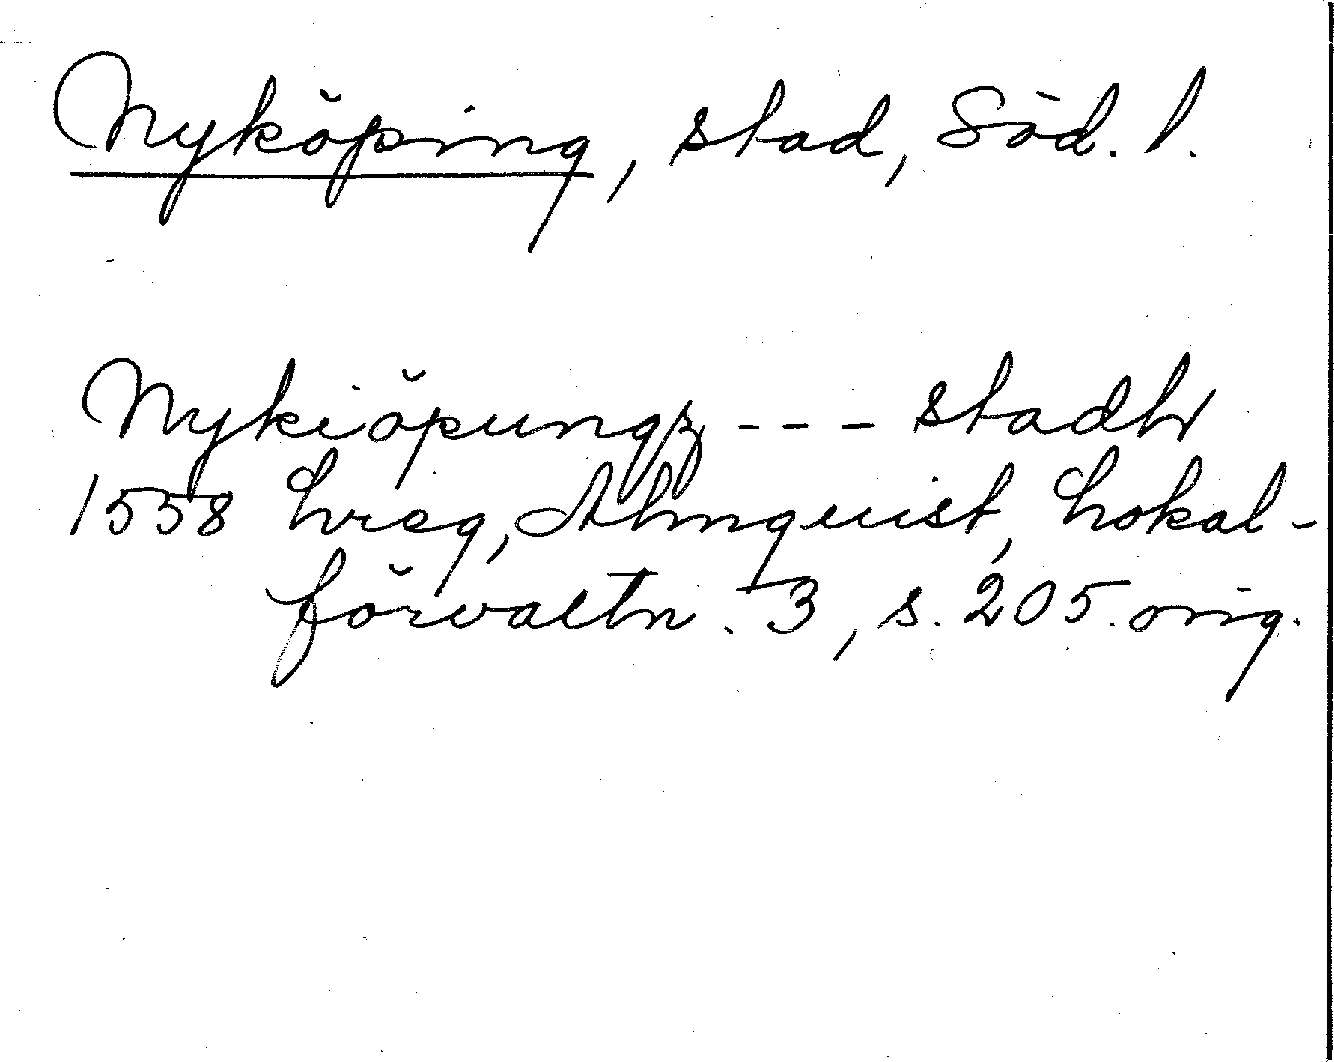 Nyköping, stad, Söd. l.
Nykiöpungz --- stadh
1558 Lreg, Almquist, Lokal-
förvaltn. 3, s. 205. orig.